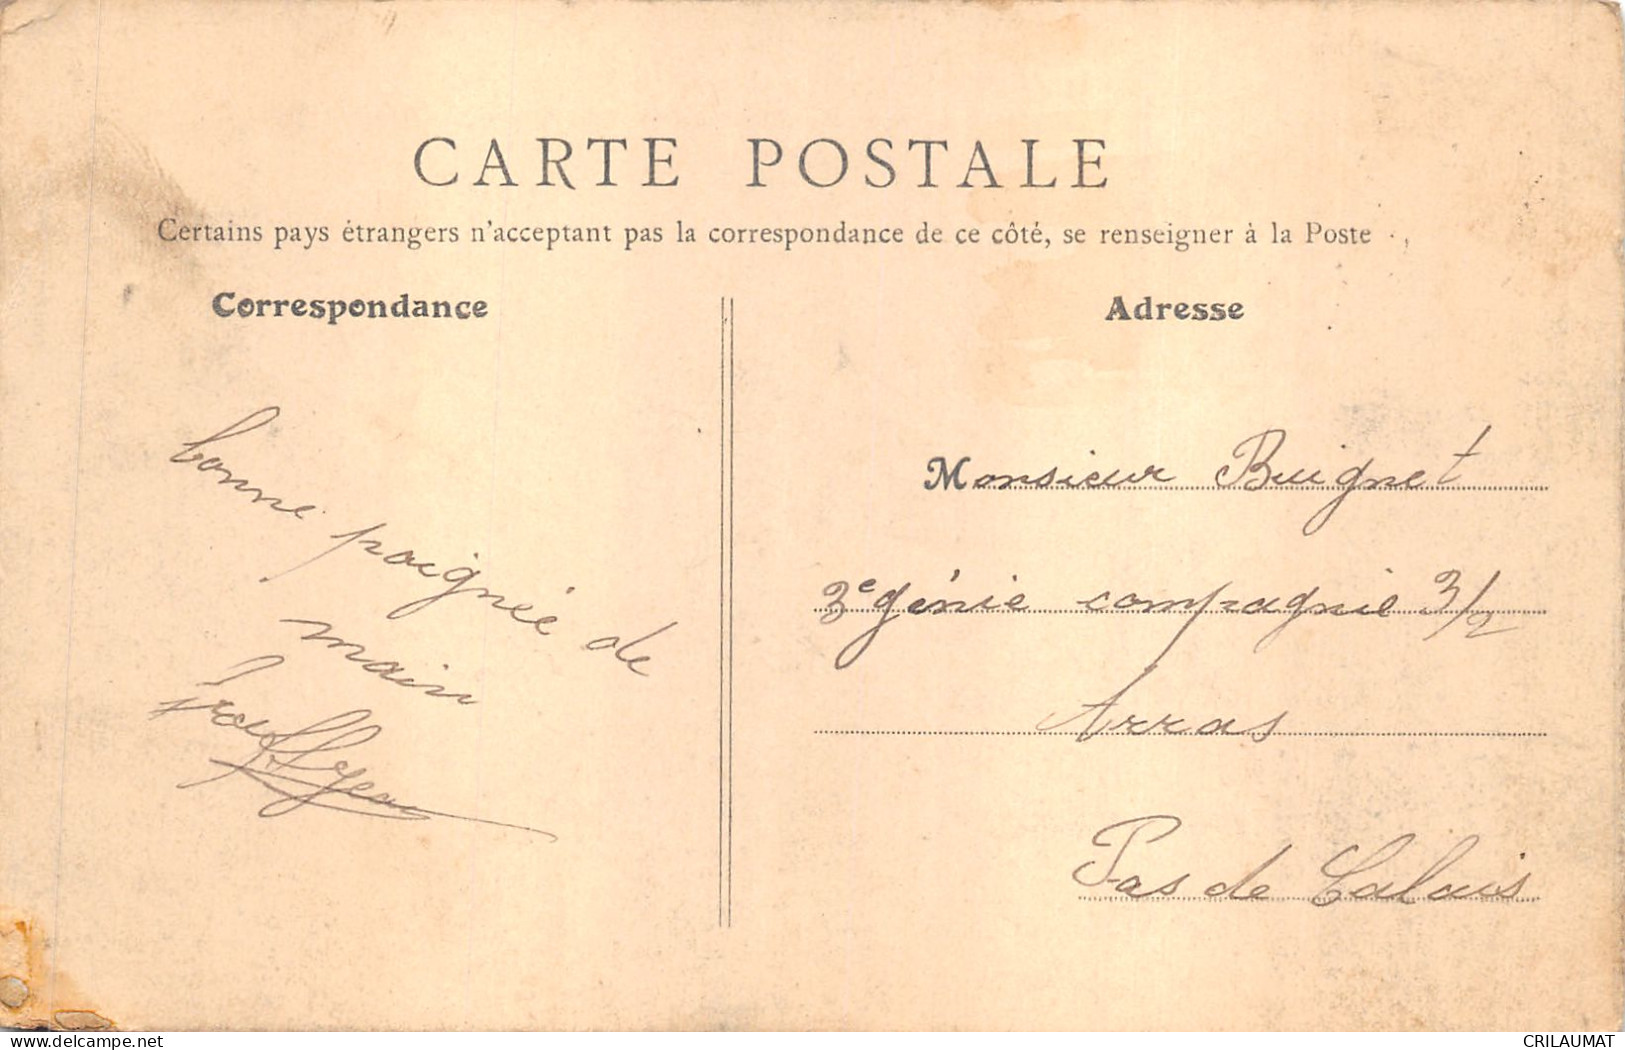 CARTE POSTALE
Certains pays étrangers n'acceptant pas la correspondance de ce côté, se renseigner à la Poste
Correspondance
bonne poignée de
main
Adresse
Monsieur Buignet
3e génie compagnie 3/2
Arras
Pas de Calais
delcampe.net
CRILAUMAT